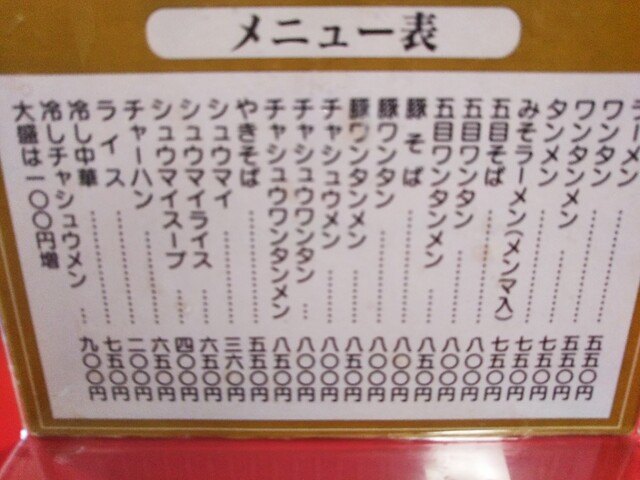 メニュー表
ラーメン 五五〇円
ワンタン ………… 五五〇円
ワンタンメン ……… 七五〇円
タンメン ………… 七五〇円
みそラーメン(メンマ入) 七五〇円
五目そば ………… 八〇〇円
五目ワンタン ……… 八〇〇円
五目ワンタンメン …… 八五〇円
豚そば ………… 八〇〇円
豚ワンタン ……… 八〇〇円
豚ワンタンメン …… 八五〇円
チャシュウメン …… 八〇〇円
チャシュウワンタン … 八〇〇円
チャシュウワンタンメン 八五〇円
やきそば ………… 五五〇円
シュウマイ ……… 三六〇円
シュウマイライス …… 六五〇円
シュウマイスープ … 四〇〇円
チャーハン ……… 六五〇円
ライス ………… 二〇〇円
冷し中華 ………… 七五〇円
冷しチャシュウメン … 九〇〇円
大盛は一〇〇円増